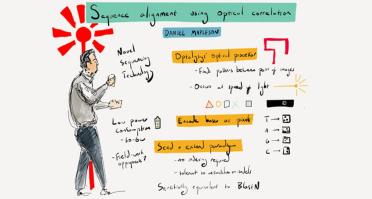 Sequence alignment using optical correlation
DANIEL MAPLESON
Novel
Sequencing
Technology
Optalysys' optical processor
- Finds patterns between pair of images
- Occurs at speed of light
Low power
consumption
Encode bases as pixels
T →
A →
G →
C →
- Field-work
Seed & extend paradigm
- no indexing required
- tolerant to
Sensitivity equivalent to BLASTN